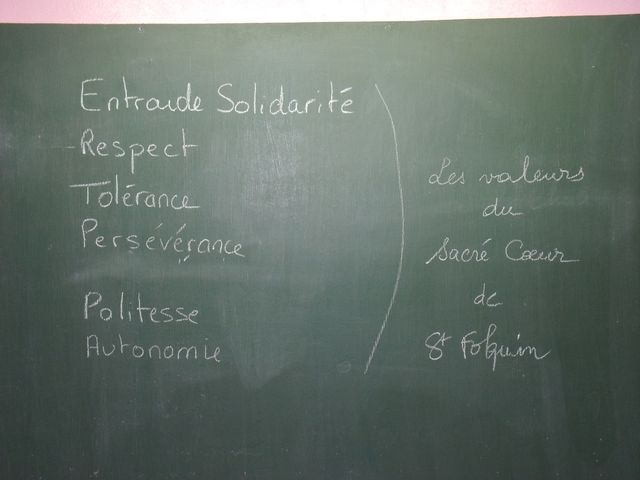 Entraide Solidarité
Respect
Tolérance
Persévérance
Politesse
Autonomie
Les valeurs
du
Sacré Cœur
de
St Folquin